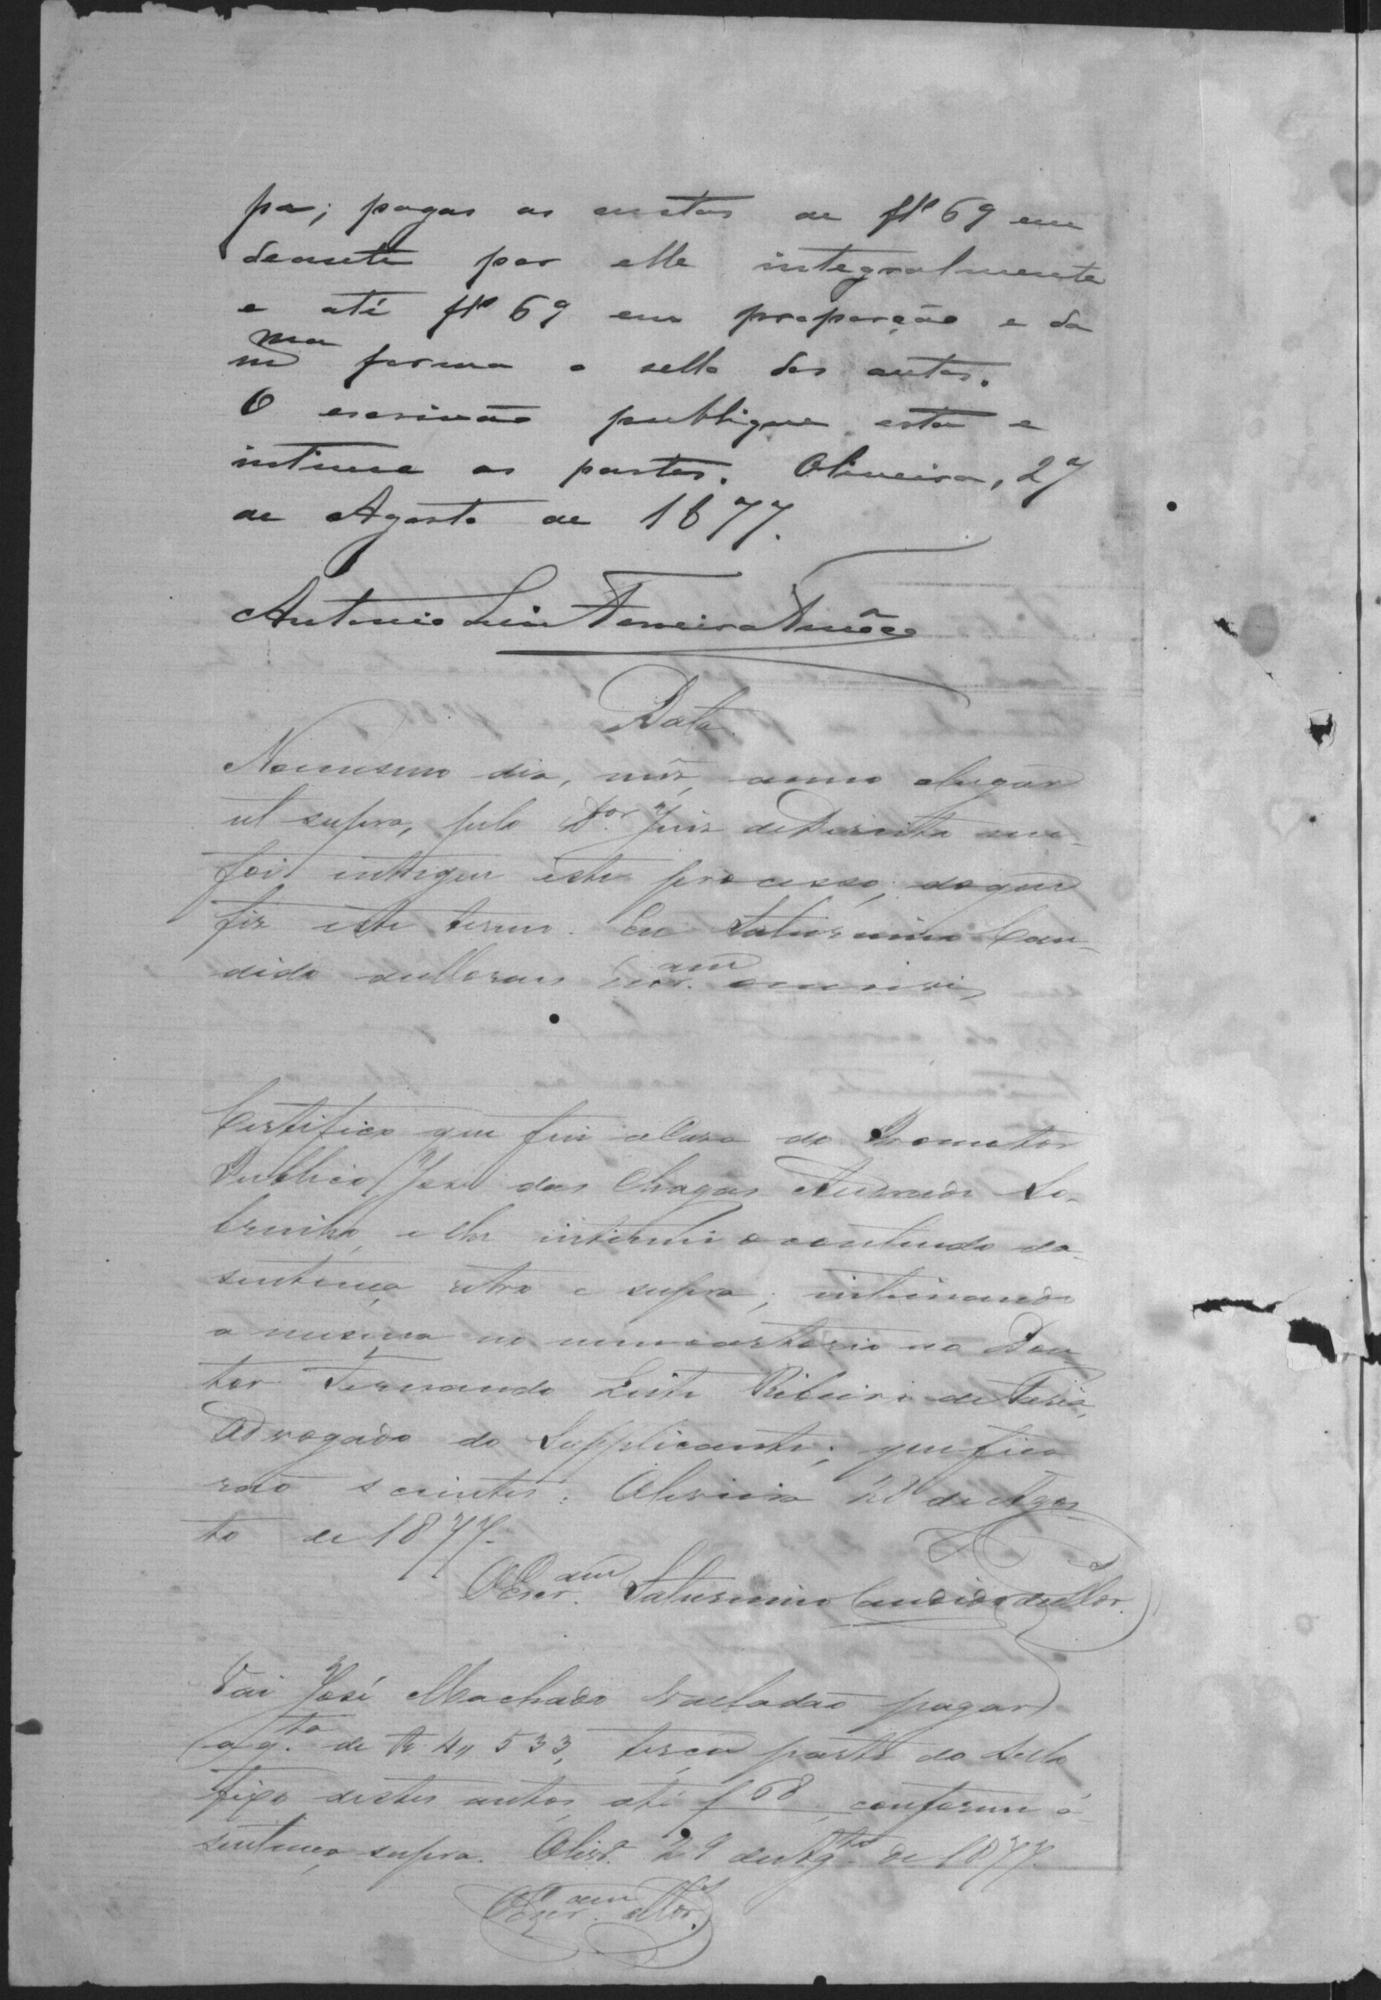 pa; pagas as custas de fl.ª 69 em
deante por elle integralmente
e até fl.ª 69 em proporção e da
m.ma forma o sello dos autos.
O escrivão publique esta e
intime as partes. Oliveira, 27
de Agosto de 1877.
Antonio Luiz Ferreira Tinôco
Data
No mesmo dia, mês, anno e lugar
ut supra, pelo D.or Juiz de Direito me
foi entregue este processo, do que
fiz este termo. Eu Saturnino Can-
dido de Moraes Escr.am o escrevi
Certifico que fui a Casa do Promotor
Publico José das Chagas Andrade So-
brinho, e lhe intimei o conteudo da
sentença retro e supra; intimando
a mesma no meu cartorio ao Dou
tor Fernando Leite Ribeiro de Faria,
Advogado do Supplicante; que fica
rão scientes. Oliveira 28 de Agos
to de 1877.
O Escr.am Saturnino Candido de Mor.es
Vai José Machado Valladão pagar
a q.ta de R 4,,533, terça parte do sello
fixo destes autos até f 68, conforme a
sentença supra. Olivr.ª 29 de Ag.to de 1877.
O Escr.am Mor.es